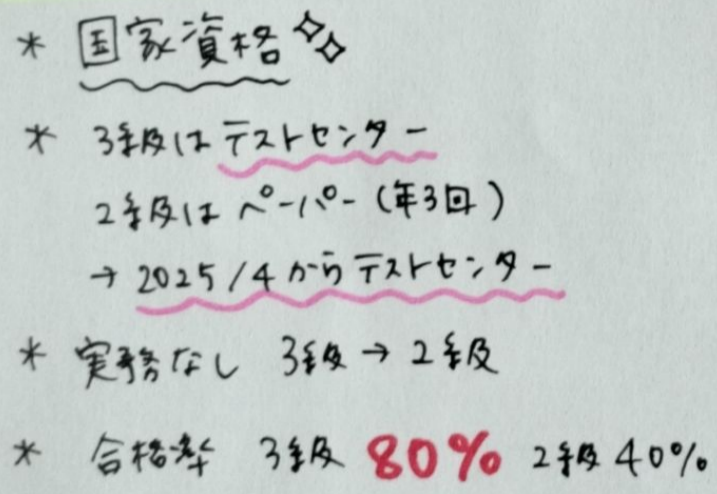 * 国家資格
* 3級は テストセンター
2級は ペーパー (年3回)
→ 2025/4 から テストセンター
* 実務なし 3級 → 2級
* 合格率 3級 80% 2級 40%